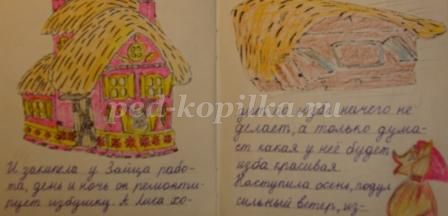 И закипела у Зайца рабо-
та, день и ночь он ремонти-
рует избушку. А Лиса хо-
ничего не
делает, а только дума-
ет какая у неё будет
изба красивая.
Наступила осень, подул
сильный ветер, из-
ped-kopilka.ru